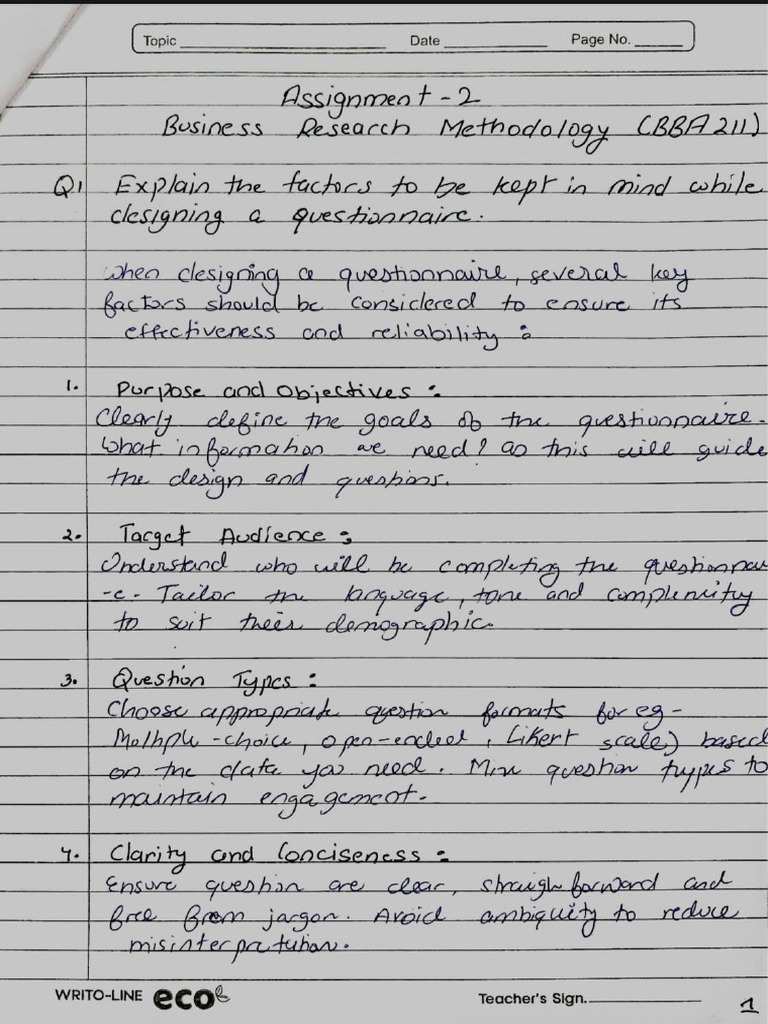 Topic Date Page No.
Assignment - 2
Business Research Methodology (BBA211)
Q1 Explain the factors to be kept in mind while
designing a questionnaire.
When designing a questionnaire, several key
factors should be considered to ensure its
effectiveness and reliability :
1. Purpose and Objectives :
Clearly define the goals of the questionnaire.
What information we need? as this will guide
the design and questions.
2. Target Audience :
Understand who will be completing the questionnai
-e. Tailor the language, tone and complexity
to suit their demographic.
3. Question Types :
Choose appropriate question formats for eg-
Multiple-choice, open-ended, Likert scale) based
on the data you need. Mix question types to
maintain engagement.
4. Clarity and Conciseness :
Ensure question are clear, straighforward and
free from jargon. Avoid ambiquity to reduce
misinterpretution.
WRITO-LINE eco Teacher's Sign.
1